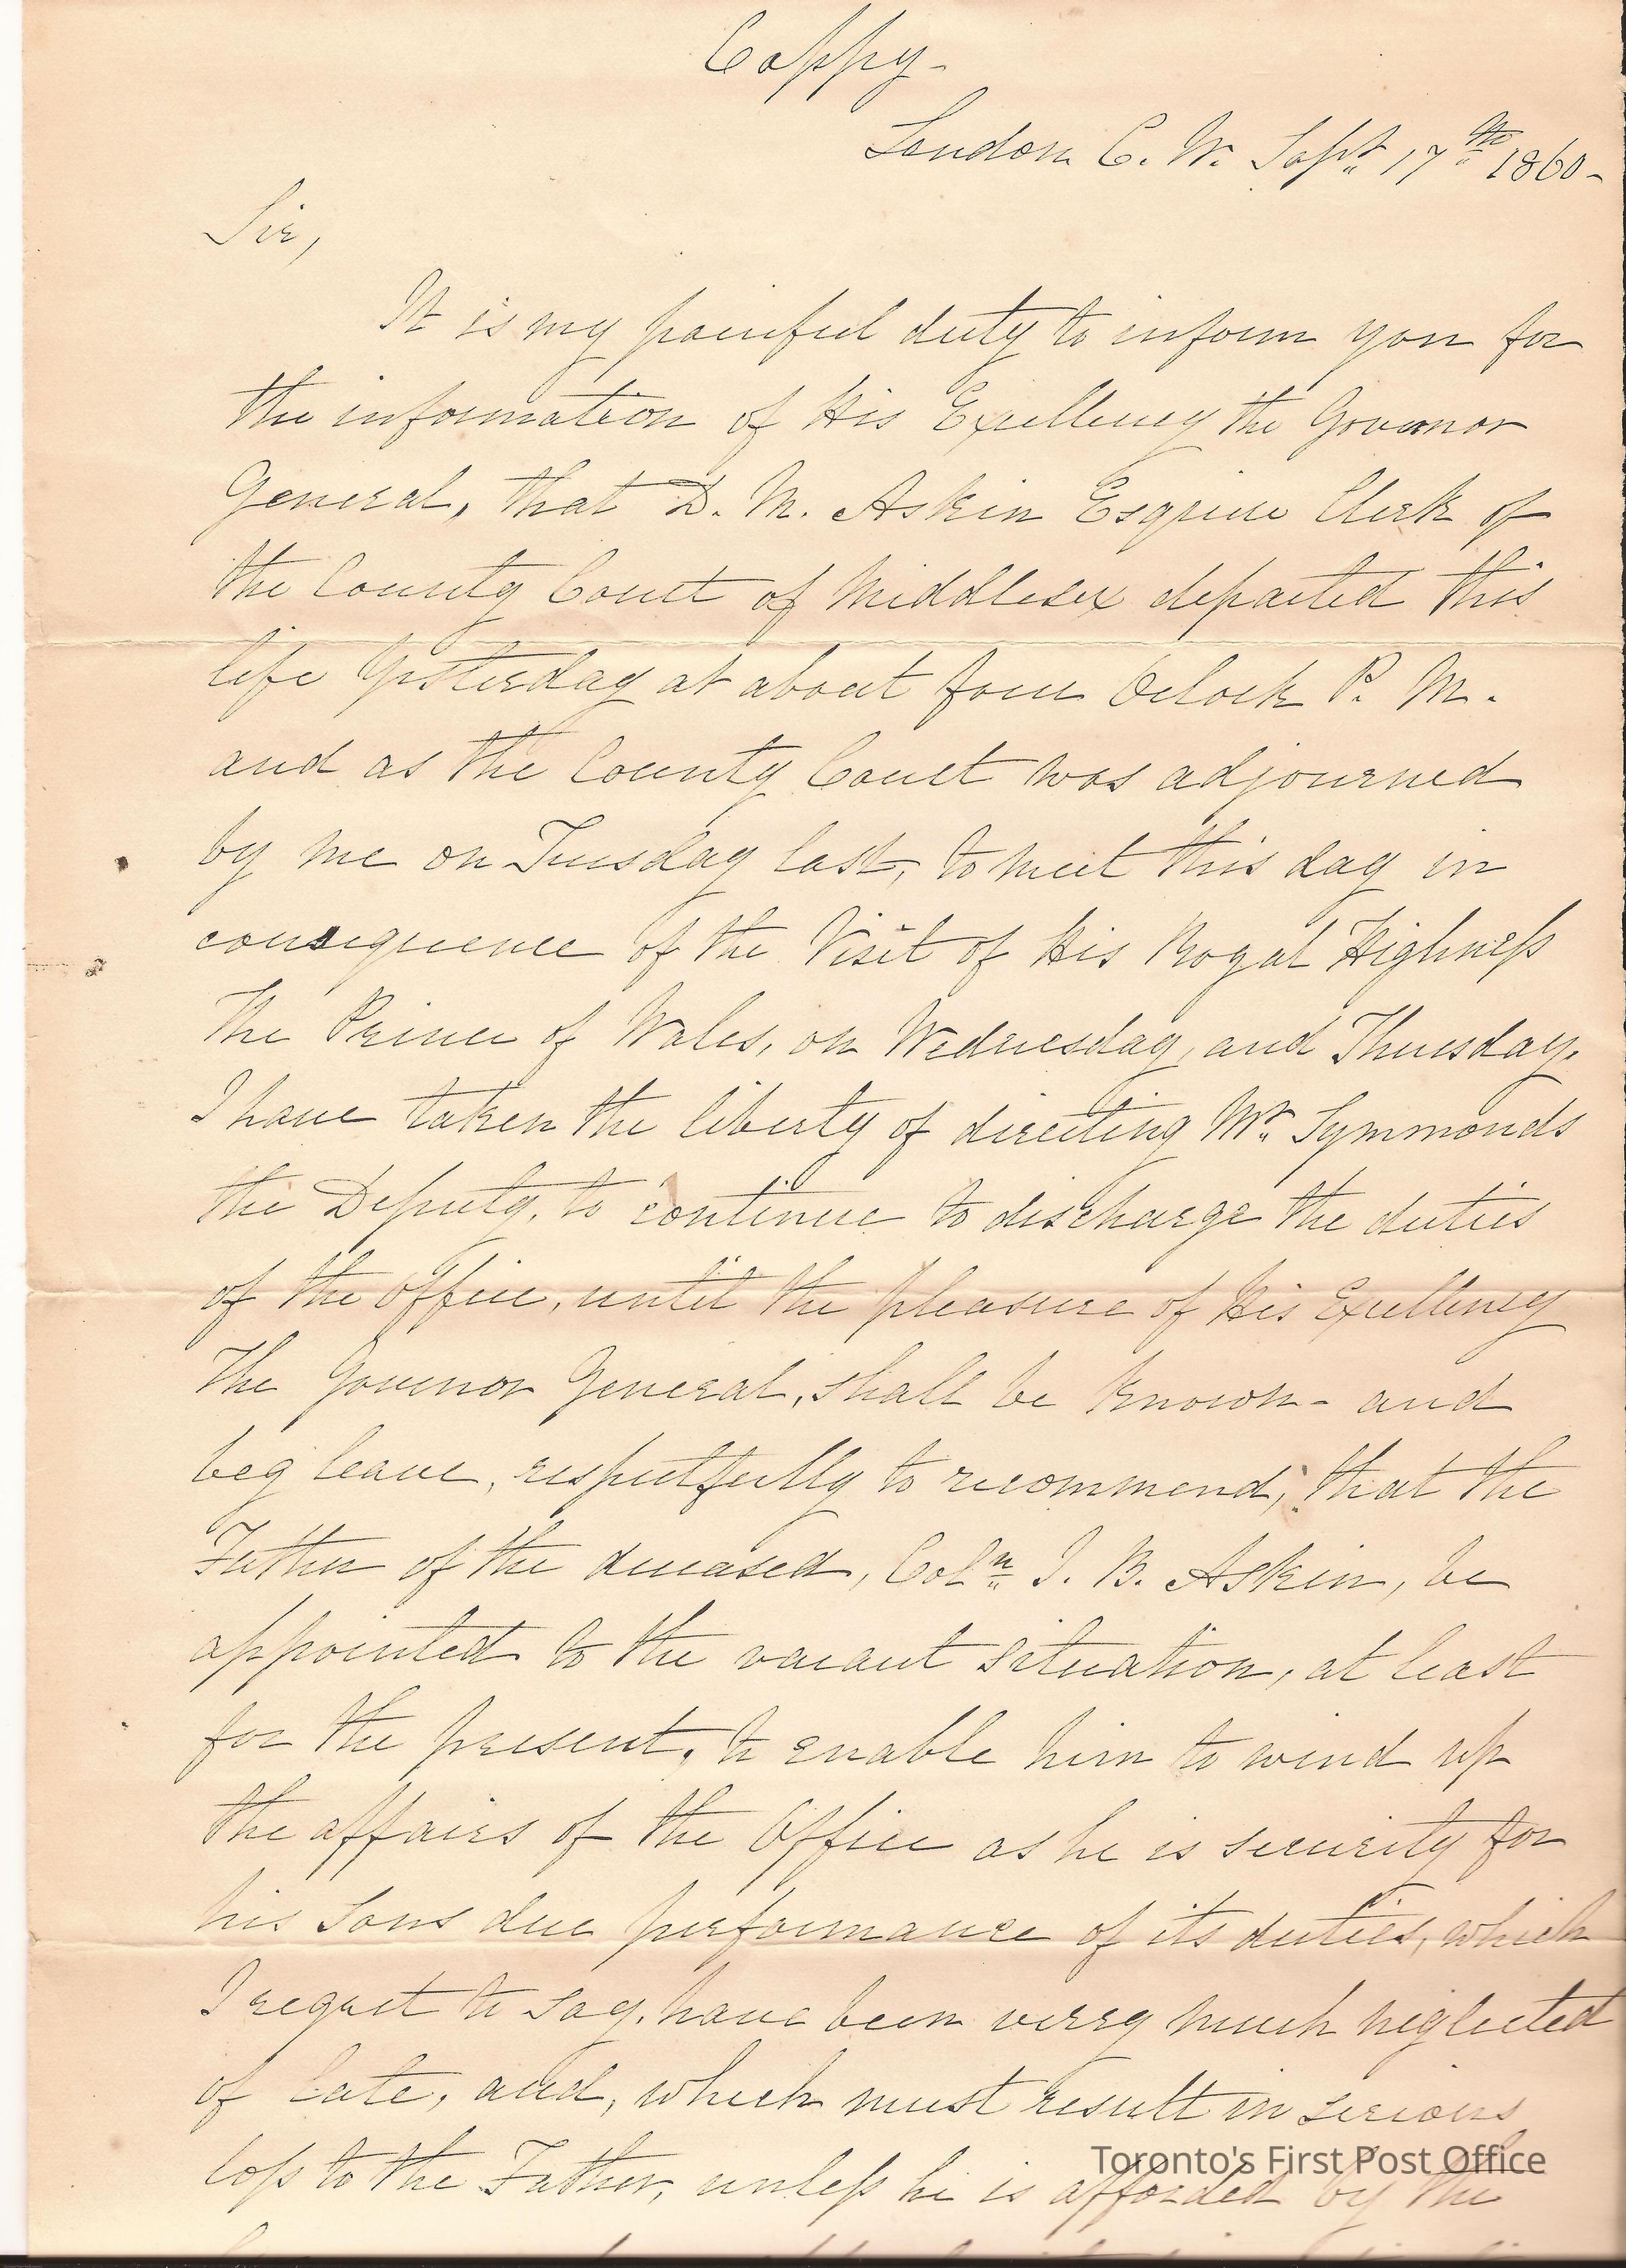 Coppy-
London C. W. Sept. 17th 1860-
Sir,
It is my painful duty to inform you for
the information of His Exellency the Governor
General, that D. M. Askin Esquire Clerk of
the County Court of Middlesex departed this
life Yesterday at about four Oclock P. M.
and as the County Court was adjourned
by me on Tuesday last, to meet this day in
consequence of the Visit of His Royal Highness
The Prince of Wales, on Wednesday, and Thursday.
I have taken the liberty of directing Mr. Symmonds
the Deputy, to continue to discharge the duties
of the Office, until the pleasure of His Exellency
The Govenor General, shall be known- and
beg leave, respectfully to recommend, that the
Father of the deceased, Coln. J. B. Askin, be
appointed to the vacant situation, at least
for the present, to enable him to wind up
the affairs of the Office as he is security for
his Sons due performance of its duties, which
I regret to say, have been verry much neglected
of late, and, which must result in serious
loss to the Father, unless he is afforded by the
Toronto's First Post Office